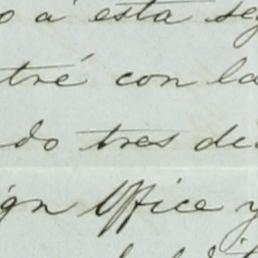 o á esta seg
tré con la
do tres de
ign Office y